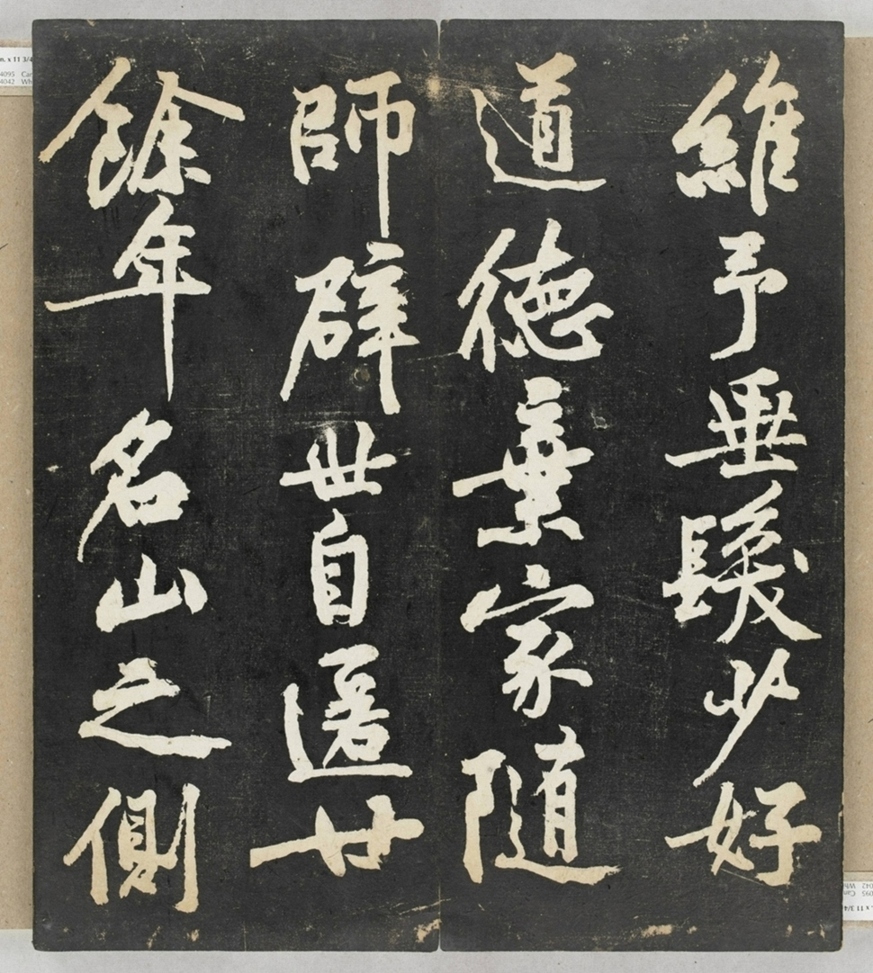 維予垂髮少好
道德棄家隨
師辟世自匿廿
餘年名山之側